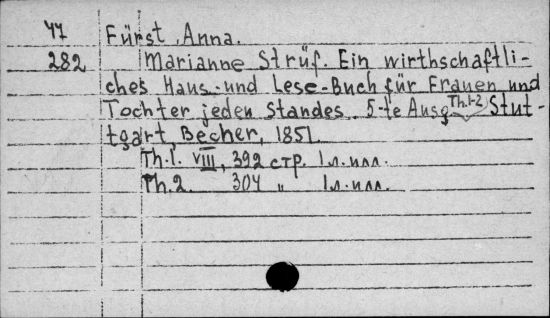 47 Fürst, Anna.
282 Marianne Strüf. Ein wirthschaftli-
ches Haus- und Lese-Buch für Frauen und
Tochter jeden Standes. 5-te Ausg. Th.1-2 Stut-
tgart, Becher, 1851.
Th.1. VIII, 392 стр. 1 л. илл.
Th.2. 304 " 1 л. илл.